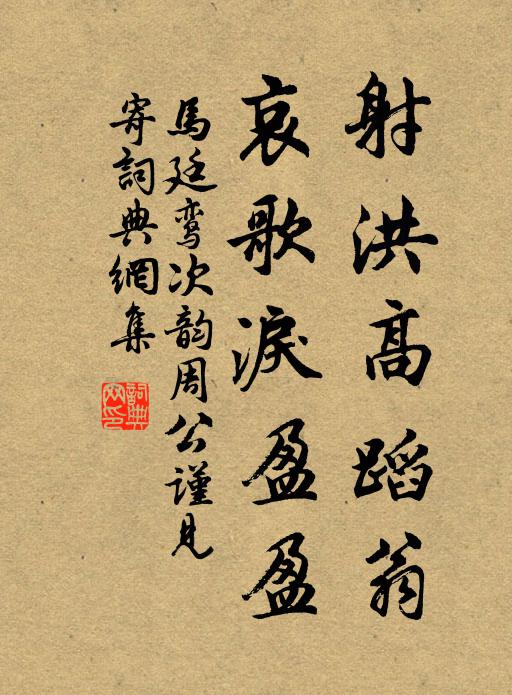 射洪高蹈翁
哀歌淚盈盈
馬廷鸾次韵周公謹見
寄詞典網集
詞典網印